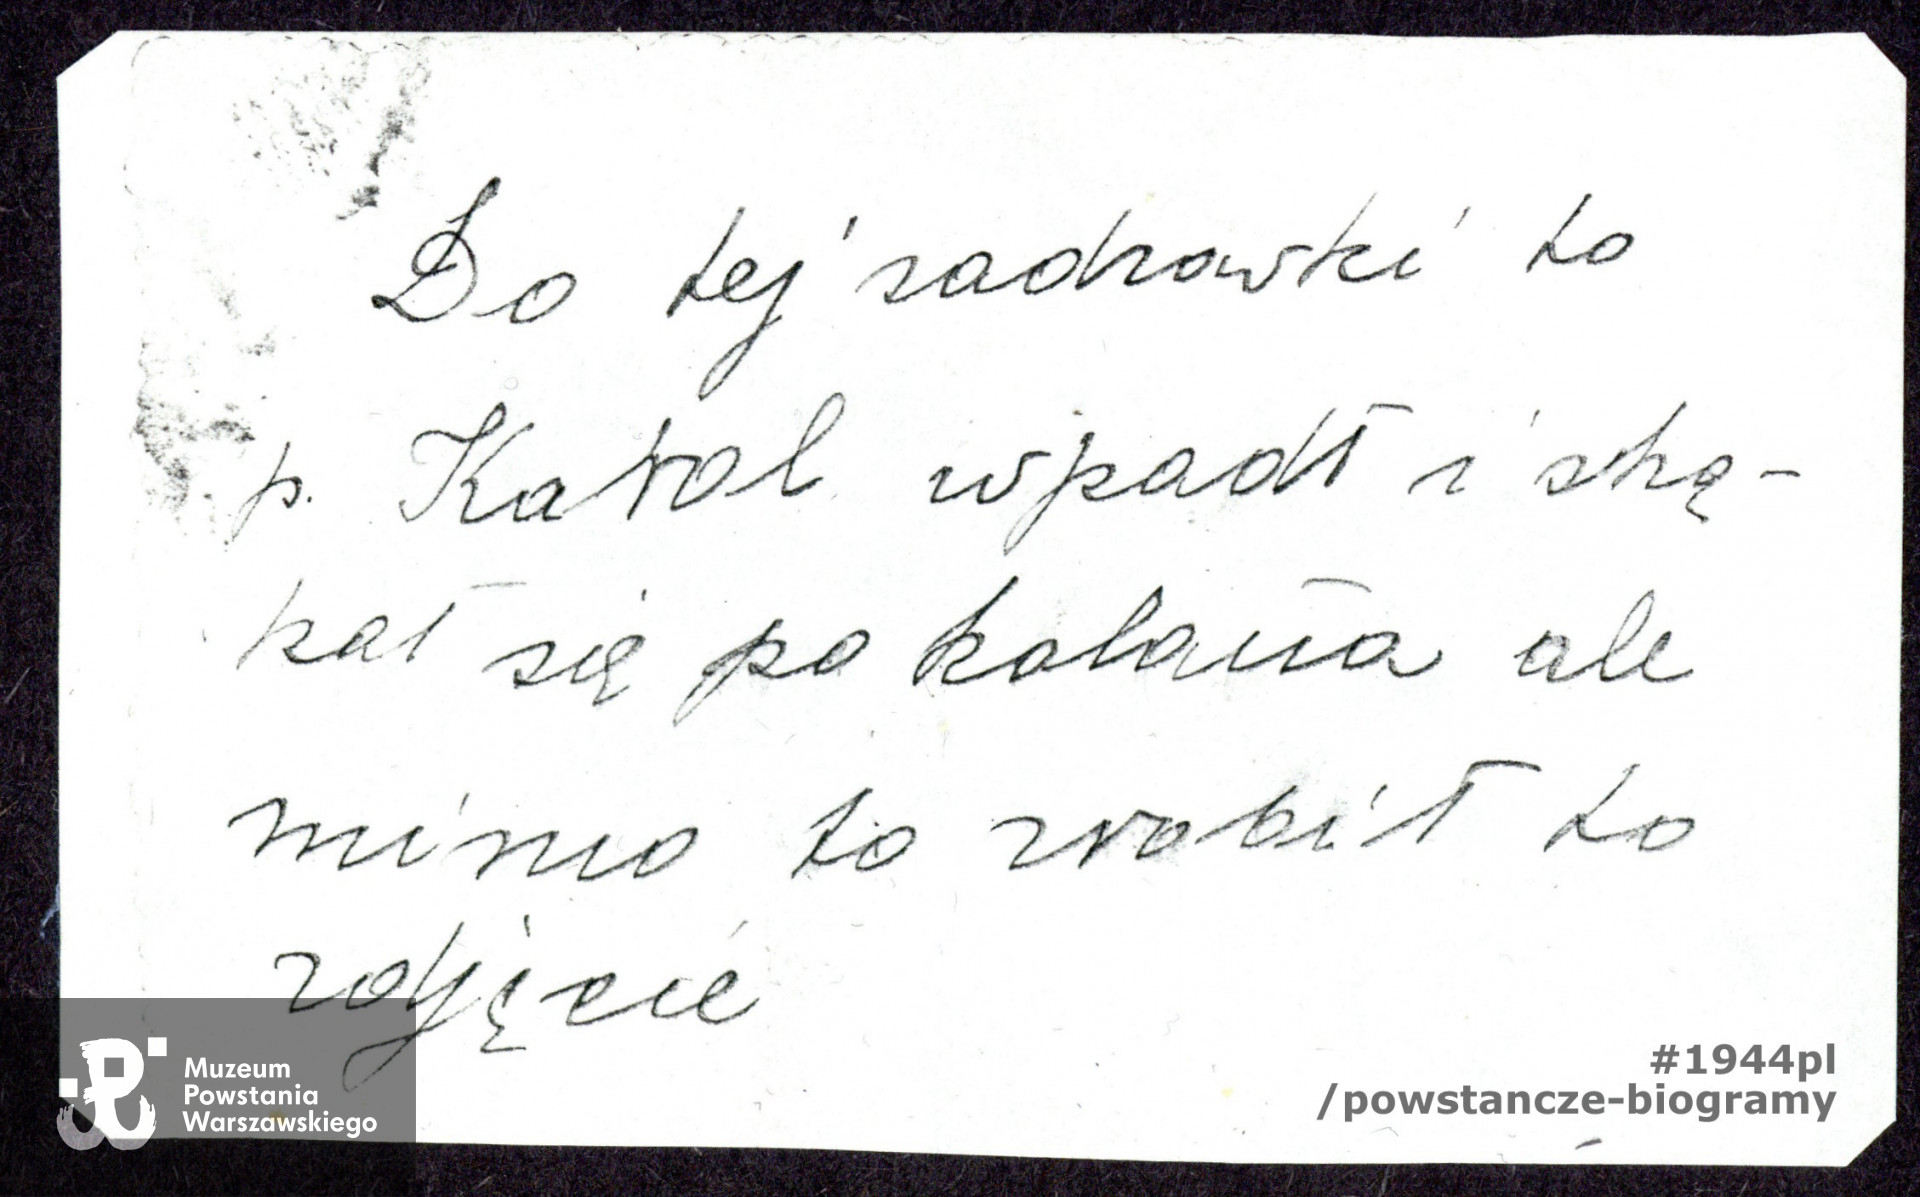 Do tej sadzawki to
p. Karol wpadł i ską-
kał się po kolana ale
mimo to zrobił to
zdjęcie
Muzeum
Powstania
Warszawskiego
#1944pl
/powstancze-biogramy